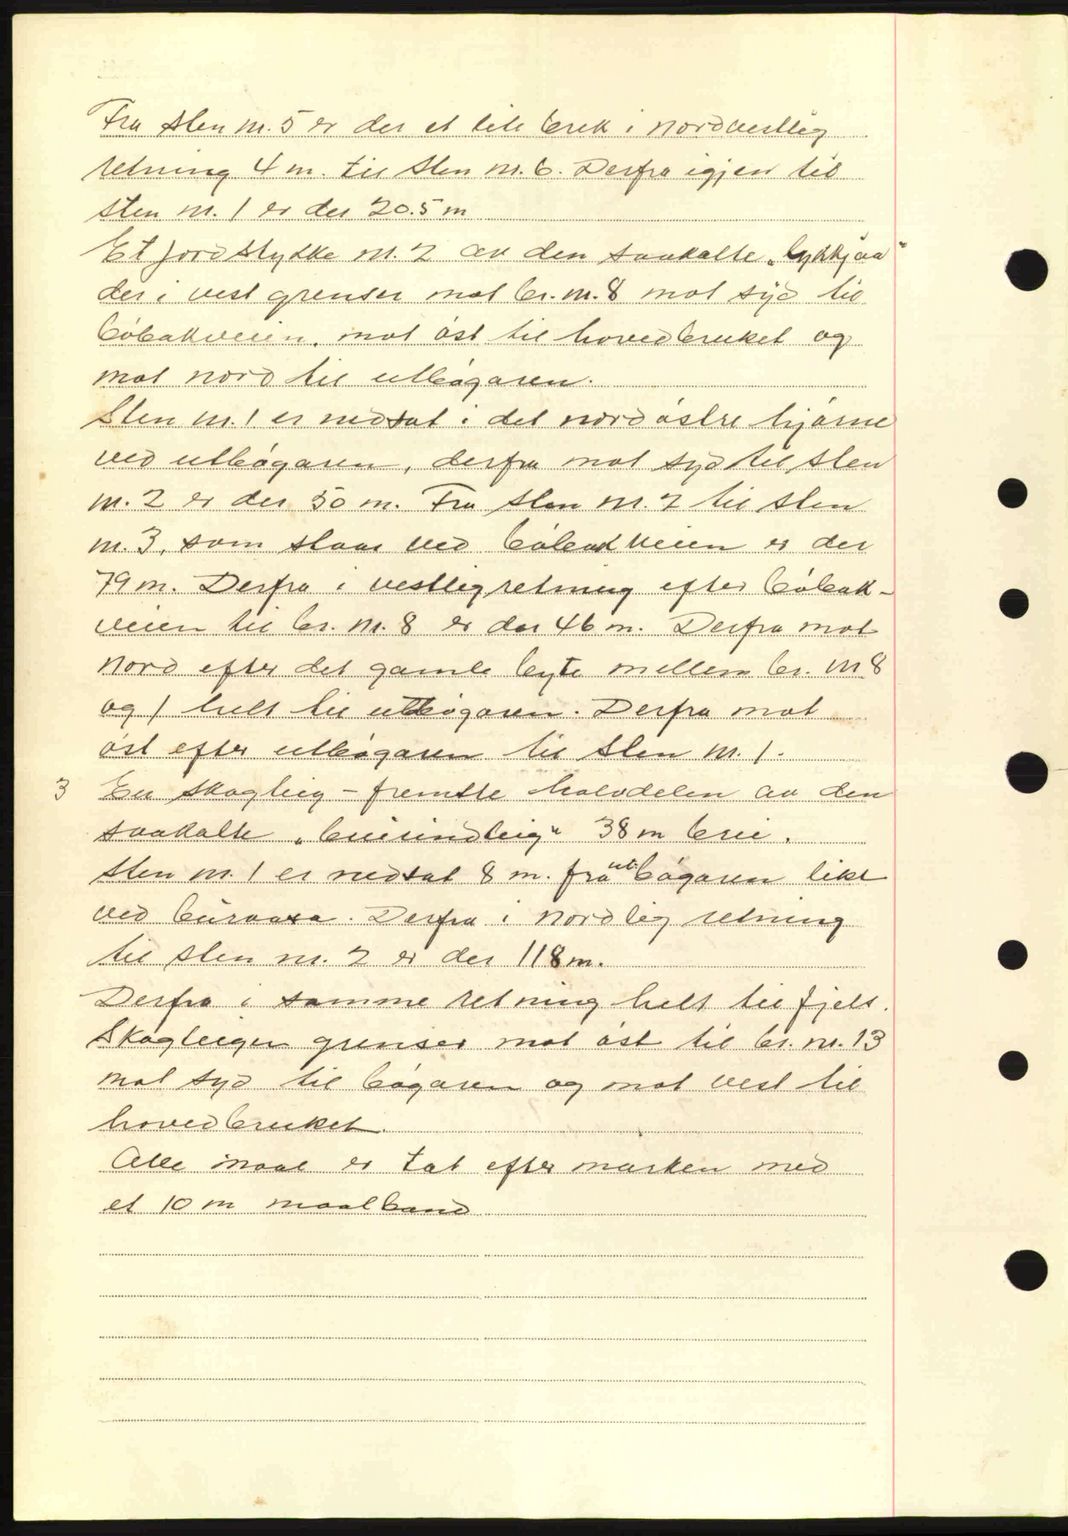 Fra sten nr. 5 er der et lite bruk i nordvestlig
retning 4 m. til sten nr. 6. Derfra igjen til
sten nr. 1 er der 20.5 m
Et jordstykke nr. 2 av den saakalte „Lykkjaa“
der i vest grenser mot br. nr. 8 mot syd til
bøbakveien, mot øst til hovedbruket og
mot nord til utbøgaren.
Sten nr. 1 er nedsat i det nordøstre hjørne
ved utbøgaren, derfra mot syd til sten
nr. 2 er der 50 m. Fra sten nr. 2 til sten
nr. 3, som staar ved bøbakveien er der
79 m. Derfra i vestlig retning efter bøbak-
veien til br. nr. 8 er der 46 m. Derfra mot
nord efter det gamle byte mellem br. nr. 8
og 1 helt til utbøgaren. Derfra mot
øst efter utbøgaren til sten nr. 1.
3 En skogteig – fremste halvdelen av den
saakalte 38 m brei.
Sten nr. 1 er nedsat 8 m. fra utbøgaren like
ved Derfra i nordlig retning
til sten nr. 2 er der 118 m.
Derfra i samme retning helt til fjels.
Skogteigen grenser mot øst til br. nr. 13
mot syd til bøgaren og mot vest til
hovedbruket.
Alle maal er tat efter marken med
et 10 m maalband